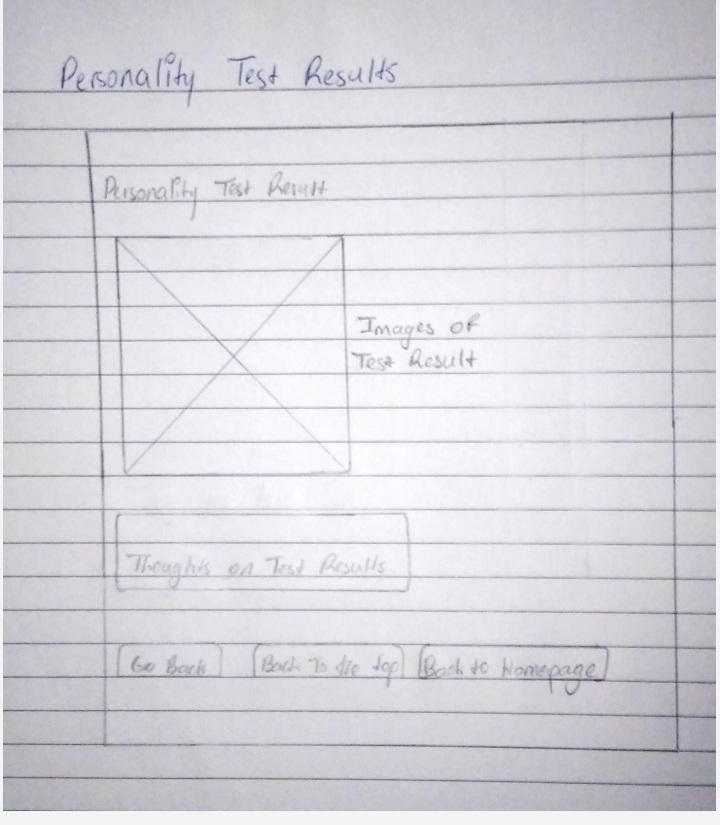 Personality Test Results
Personality Test Result
Images of
Test Result
Thoughts on Test Results
Go Back
Back To the top
Back to Homepage